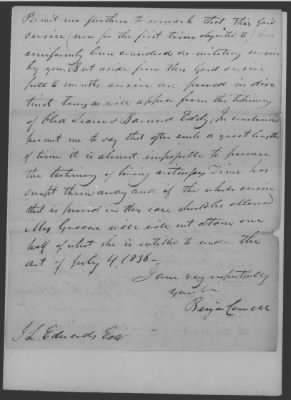 Permit me further to remark that this Guard
service, now for the first time objected to, has
uniformly been considered as military service
by you. But aside from this Guard service
full 6 months service are proved in dis
tinct tours as will appear from the testimony
of Obed Seaver & Barnard Eddy. In conclusion
permit me to say that after such a great length
of time it is almost impossible to procure
the testimony of living witnesses, time has
swept them away and if the whole service
that is proved in this case should be allowed
Mrs Greene will not obtain one
half of what she is entitled to under the
act of July 4, 1836—
I am very respectfully
Yours &c
Benja Cowell
J L Edwards Esq